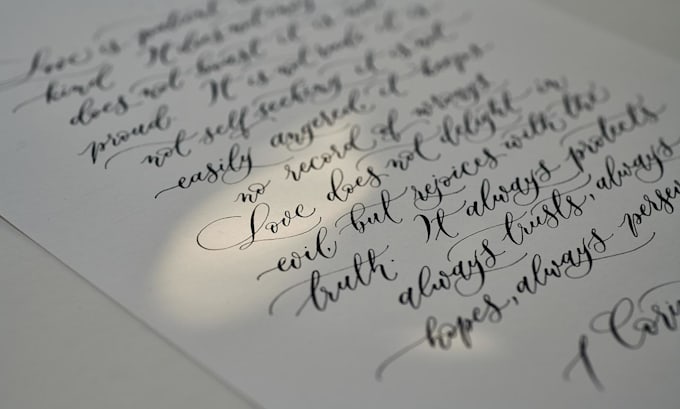 Love is patient
kind. It does not envy
does not boast it is not
proud. It is not rude it is
not self seeking it is not
easily angered, it keeps
no record of wrongs
Love does not delight in
evil, but rejoices with the
truth. It always protects
always trusts, always
hopes, always perse
1 Cori